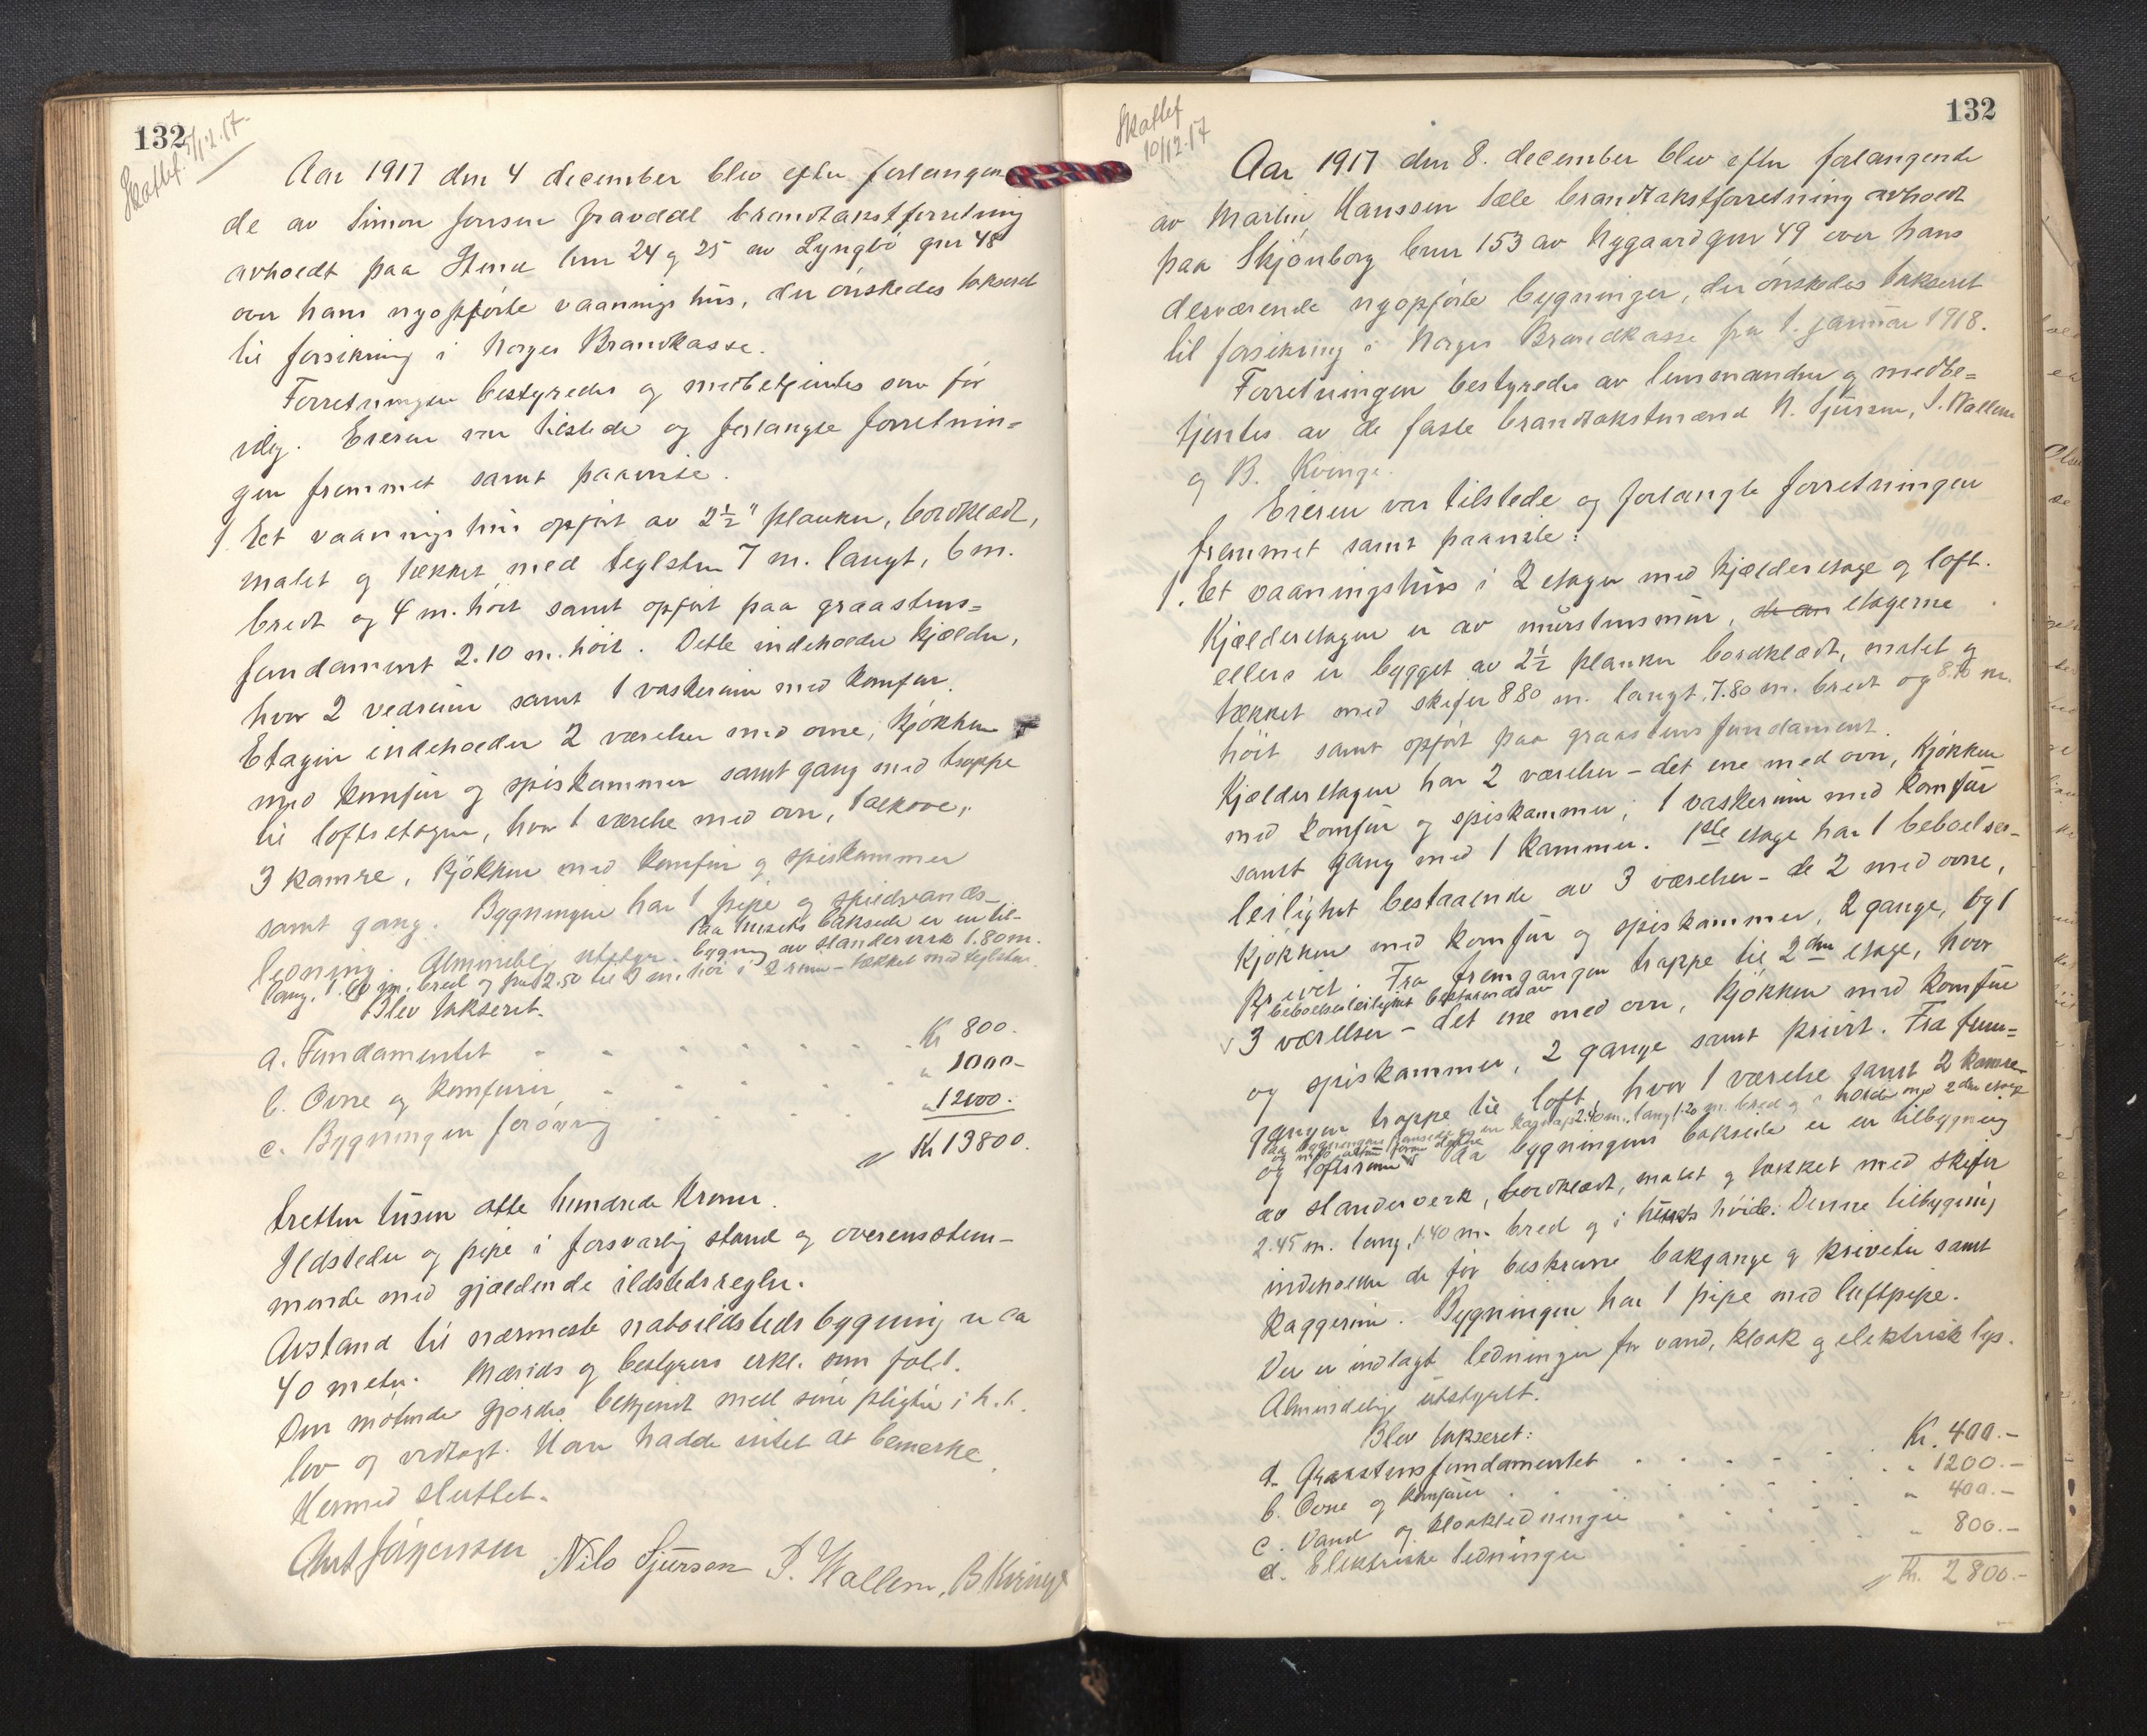 132
Skattef. 5/12.17.
Aar 1917 den 4 december blev efter forlangen
de av Simon Jonsen Fravddal brandtakstforretning
avholdt paa Stend bnr 24 og 25 av Lyngbö gnr 48
over hans nyopförte vaaningshus, der önskedes takseret
til forsikring i Norges Brandkasse.
Forretningen bestyredes og medbetjentes som för
idag. Eieren var tilstede og forlangte forretnin=
gen fremmet samt paaviste.
1. Et vaaningshus opfört av 2½" planker, bordklædt,
malet og tækket med teglsten 7 m. langt, 6 m.
bredt og 4 m. höit samt opfört paa graastens=
fundament 2.10 m. höit. Dette indeholder kjælder,
hvor 2 vedrum samt 1 vaskerum med komfur.
Etagen indeholder 2 værelser med ovne, kjökken
med komfur og spiskammer samt gang med trappe
til loftsetagen, hvor 1 værelse med ovn, 1 alkove,
3 kamre, kjökken med komfur og spiskammer
samt gang. Bygningen har 1 pipe og spildvands-
ledning. Almindelig utstyr. Paa husets bakside er en til-
bygning av standerverk 1.80 m.
lang, 1.60 m. bred og fra 2.50 til 3 m. höi i 2 rum - tækket med teglsten.
Blev takseret.
a. Fundamentet Kr 800.
b. Ovne og komfurer " 1000-
c. Bygningen forövrig " 12000.
Kr 13800.
tretten tusen otte hundrede kroner.
Ildsteder og pipe i forsvarlig stand og overensstem-
mende med gjældende ildstedsregler.
Avstand til nærmeste naboildstedsbygning er ca
40 meter. Mænds og bestyrers erkl. som fol. 1.
Den mötende gjordes bekjendt med sine pligter i h.t.
lov og vedtægt. Han hadde intet at bemerke.
Hermed sluttet.
Ant Jörgensen Nils Sjursen S. Hallem, B Kvinge
132
Skattef
10/12.17
Aar 1917 den 8. december blev efter forlangende
av Martin Hanssen Tæle brandtakstforretning avholdt
paa Skjönborg bnr 153 av Nygaard gnr 49 over hans
derværende nyopförte bygninger, der önskedes takseret
til forsikring i Norges Brandkasse fra 1. januar 1918.
Forretningen bestyredes av lensmanden og medbe=
tjentes av de faste brandtakstmænd N. Sjursen, S. Hallem
og B. Kvinge.
Eieren var tilstede og forlangte forretningen
fremmet samt paaviste:
1. Et vaaningshus i 2 etager med kjælderetage og loft.
Kjælderetagen er av murstensmur, de an etagerne
ellers er bygget av 2½ planker bordklædt, malet og
tækket med skifer 8.80 m. langt, 7.80 m. bredt og 8.70 m.
höit samt opfört paa graastens fundament.
Kjælderetagen har 2 værelser - det ene med ovn, kjökken
med komfur og spiskammer, 1 vaskerum med komfur
samt gang med 1 kammer. 1ste etage har 1 beboelses-
leilighet bestaaende av 3 værelser - de 2 med ovne,
kjökken med komfur og spiskammer, 2 gange, og 1
privet. Fra fremgangen trappe til 2den etage, hvor
1 beboelsesleilighet bestaaende av
3 værelser - det ene med ovn, kjökken med komfur
og spiskammer, 2 gange samt privet. Fra frem=
gangen trappe til loft, hvor 1 værelse samt 2 kamre
Paa bygningens framside er en karnap 2.40 m. lang, 1.20 m. bred og i höide med 2den etage
og med altan foran denne
og loftsrum. Paa bygningens bakside er en tilbygning
av standerverk, bordklædt, malet og tækket med skifer
2.45 m. lang, 1.40 m. bred og i husets höide. Denne tilbygning
indeholder de för beskrevne bakgange og priveter samt
kaggerum. Bygningen har 1 pipe med luftpipe.
Der er indlagt ledninger for vand, kloak og elektrisk lys.
Almindelig utstyrt.
Blev takseret:
a. Graastensfundamentet Kr. 400.-
b. Ovne og komfurer " 1200.-
c. Vand og kloakledninger " 400.-
d. Elektriske ledninger " 800.-
Kr. 2800.-